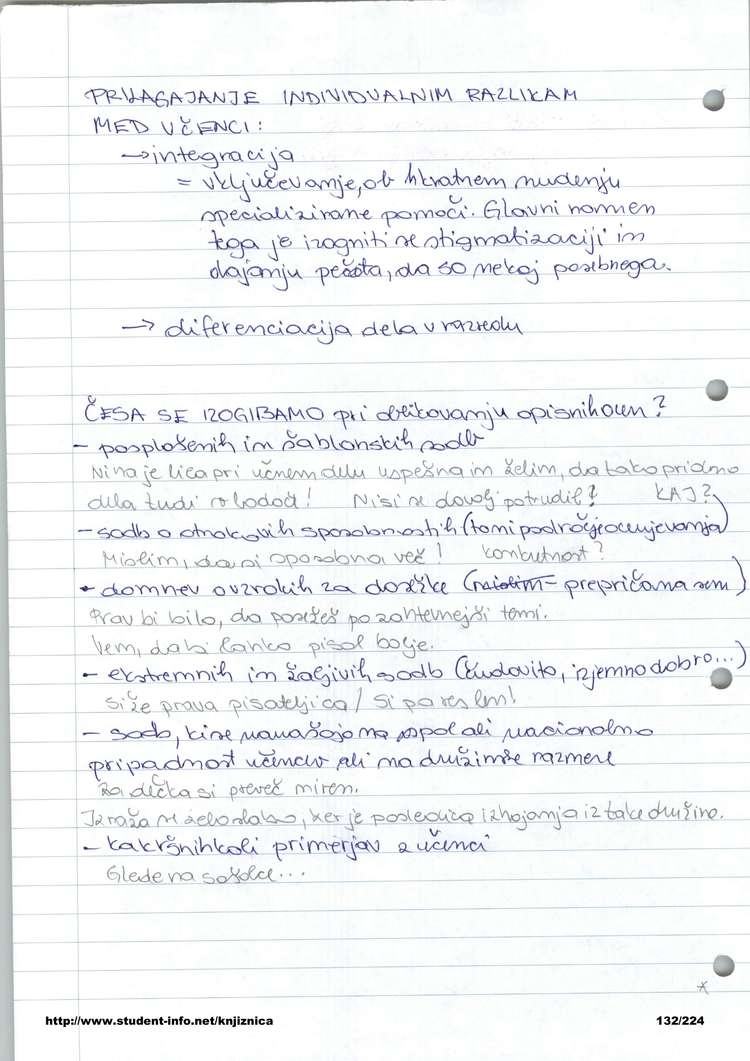 PRILAGAJANJE INDIVIDUALNIM RAZLIKAM
MED UČENCI:
→ integracija
= vključevanje, ob hkratnem nudenju
specializirane pomoči. Glavni namen
tega je izogniti se stigmatizaciji in
dajanju pečata, da so nekaj posebnega.
→ diferenciacija dela v razredu
ČESA SE IZOGIBAMO pri oblikovanju opisnih ocen?
- posplošenih in šablonskih sodb
Nina je bila pri učnem delu uspešna in želim, da tako pridno
dela tudi v bodoče! Nisi se dovolj potrudil! KAJ?
- sodb o otrokovih sposobnostih (to ni področje ocenjevanja)
Mislim, da si sposobna več! konkretnost?
- domnev o vzrokih za dosežke (mislim - prepričana sem)
Prav bi bilo, da posežeš po zahtevnejši temi.
Vem, da bi lahko pisal bolje.
- ekstremnih in žaljivih sodb (čudovito, izjemno dobro...)
Si že prava pisateljica / Si pa res len!
- sodb, ki se nanašajo na spol ali nacionalno
pripadnost učencev ali na družinske razmere
Za dečka si preveč miren.
Izraža se zelo slabo, ker je posledica izhajanja iz take družine.
- kakršnihkoli primerjav z učenci
Glede na sošolce...
*
http://www.student-info.net/knjiznica
132/224